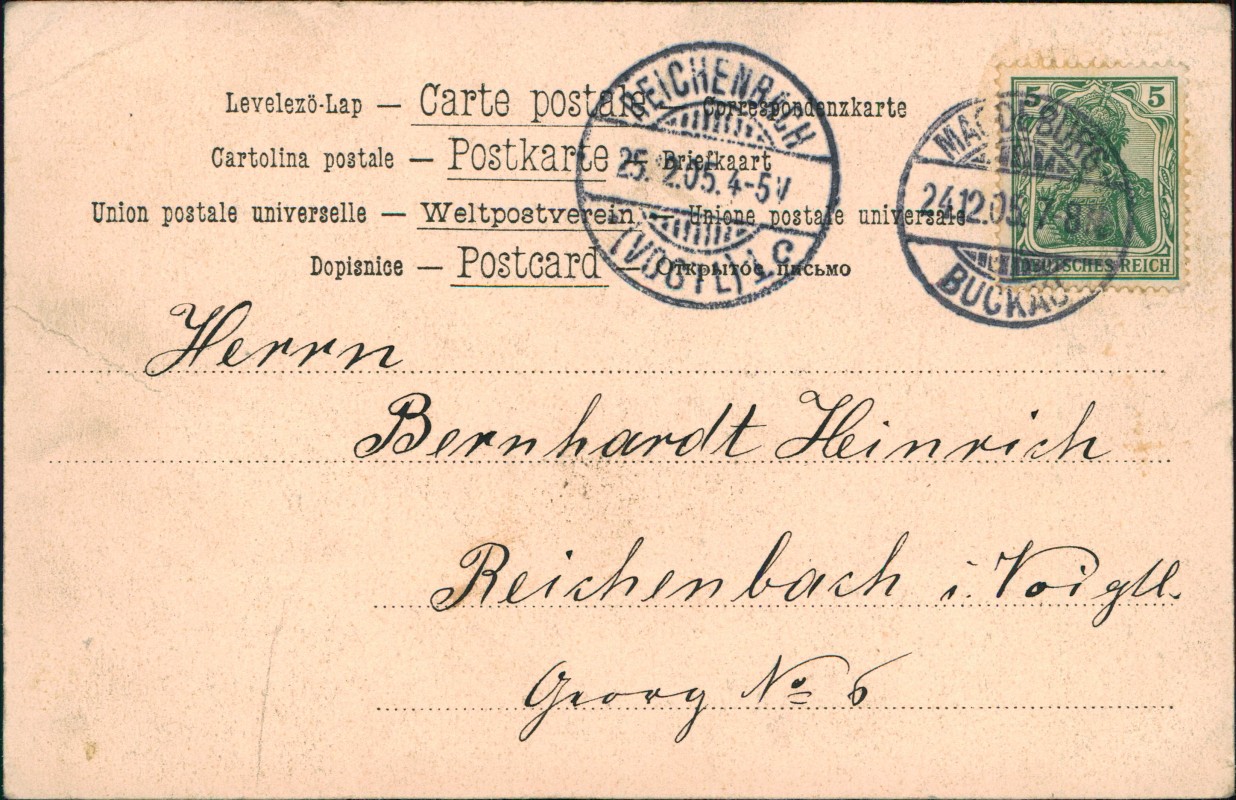 Levelezö-Lap — Carte postale — Correspondenzkarte
Cartolina postale — Postkarte — Briefkaart
Union postale universelle — Weltpostverein — Unione postale universale
Dopisnice — Postcard — Открытое письмо
REICHENBACH
25.12.05.4-5V
(VOGTL) 1 c
5 5
MAGDEBURG
24.12.05. 7-8N
BUCKAU
DEUTSCHES REICH
Herrn
Bernhardt Heinrich
Reichenbach i. Voigtl.
Georg No 6